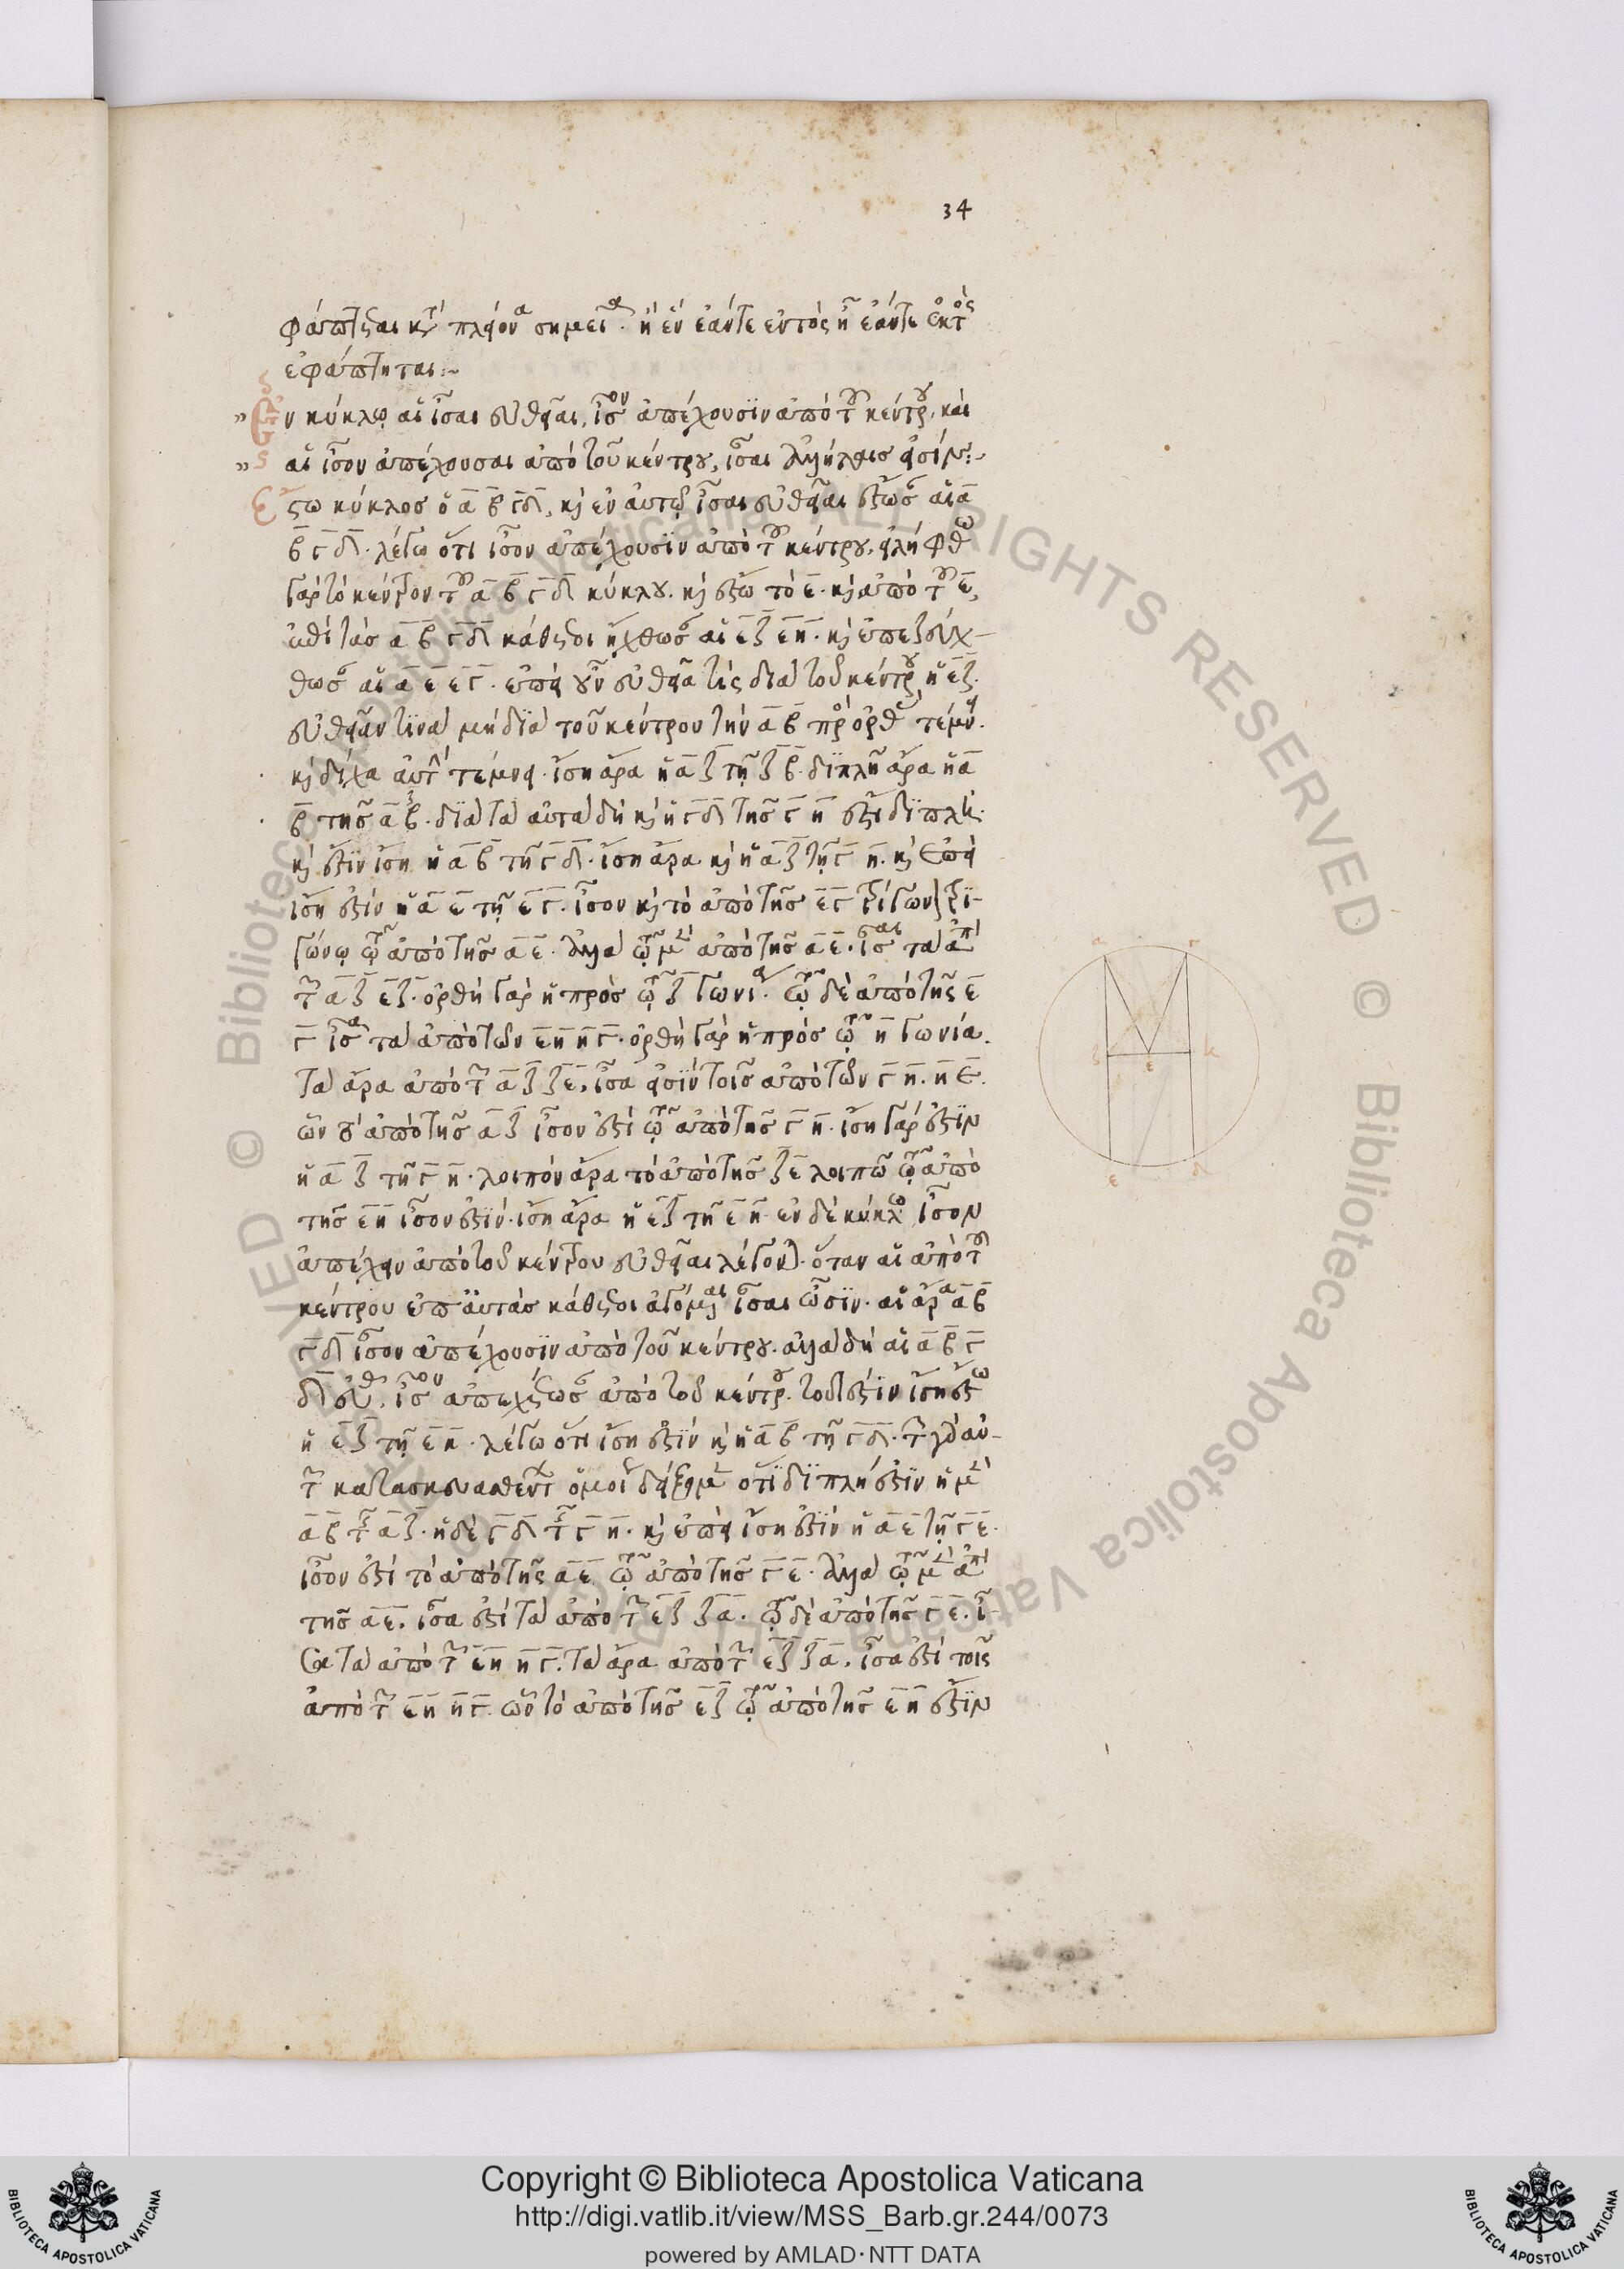 34
φάπτεσθαι κατὰ πλείονα σημεῖα ἢ ἓν ἐάντε ἐντὸς ἢ ἐάντε ἐκτὸς
ἐφάπτηται:~
Ἐν κύκλῳ αἱ ἴσαι εὐθεῖαι, ἴσον ἀπέχουσϊν ἀπὸ τοῦ κέντρου, καὶ
αἱ ἴσον ἀπέχουσαι ἀπὸ τοῦ κέντρου, ἴσαι ἀλλήλαισ εἰσίν:~
Ἔστω κύκλοσ ὁ α β γδ, κὶ ἐν ἀυτῷ ἴσαι εὐθεῖαι ἔστωσαν αἱ α
β γ δ. λέγω ὅτι ἴσον ἀπέχουσϊν ἀπὸ τοῦ κέντρου. εἰλήφθω
γὰρ τὸ κέντρον τοῦ α β γ δ κύκλου. κὶ ἔστω τὸ ε. κὶ ἀπὸ τοῦ ε,
ἐπὶ τὰσ α β γδ κάθετοι ἤχθωσαν αἱ εζ εη. κὶ ἐπεζεύχ-
θωσαν αἱ α ε ε γ. ἐπεὶ οὖν εὐθεῖα τὶς διὰ τοῦ κέντρου ἡ εζ.
εὐθεῖαν τϊνὰ μὴ δϊὰ τοῦ κέντρου τὴν α β πρὸς ὀρθὰς τέμνει.
κὶ δίχα ἀυτὴν τέμνει. ἴση ἄρα ἡ α ζ τῇ ζ β. διπλῆ ἄρα ἡ α
β τησ α ζ. δϊὰ τὰ αὐτὰ δὴ κὶ ἡ γδ τησ γ η ἐστι δϊπλῆ.
κὶ ἐστϊν ἴση ἡ α β τῇ γ δ. ἴση ἄρα κὶ ἡ α ζ τῇ γ η. κὶ ἐπεὶ
ἴση ἐστὶν ἡ α ε τῇ ε γ. ἴσον κὶ τὸ ἀπὸ τησ ε γ τετράγωνον τετρα-
γώνῳ τῷ ἀπὸ τησ α ε. ἀλλὰ τῷ μὲν ἀπὸ τησ α ε. ἴσαι τὰ ἀπὸ
τῶν α ζ εζ. ὀρθὴ γὰρ ἡ πρὸσ τῷ ζ γωνία. τῷ δὲ ἀπὸ τῆς ε
γ ἴσα τὰ ἀπὸ τῶν ε η η γ. ὀρθὴ γὰρ ἡ πρόσ τῷ η γωνία.
τὰ ἄρα ἀπὸ τῶν α ζ ζε, ἴσα εἰσϊν τοισ ἀπὸ τῶν γ η. η ε.
ὧν τὸ ἀπὸ τησ α ζ ἴσον ἐστὶ τῷ ἀπὸ τησ γ η. ἴση γάρ ἐστϊν
ἡ α ζ τῇ γ η. λοιπὸν ἄρα τὸ ἀπὸ τησ ζε λοιπῶ τῷ ἀπὸ
τησ εη ἴσον ἐστϊν. ἴση ἄρα ἡ εζ τῇ ε η. ἐν δὲ κύκλῳ ἴσον
ἀπέχειν ἀπὸ τοῦ κέντρου εὐθεῖαι λέγονται. ὅταν αἱ ἀπὸ τοῦ
κέντρου ἐπ ἀυτὰσ κάθετοι ἀγόμεναι ἴσαι ὦσϊν. αἱ ἄρα α β
γδ ἴσον ἀπέχουσϊν ἀπὸ τοῦ κέντρου. ἀλλὰ δὴ αἱ α β γ
δ εὐθεῖαι. ἴσον ἀπεχέτωσαν ἀπὸ τοῦ κέντρου. τουτέστϊν ἴση ἔστω
ἡ ε ζ τῇ ε η. λέγω ὅτι ἴση ἐστϊν κὶ ἡ α β τῇ γδ. τῶν γὰρ αὐ-
τῶν κατασκευασθέντων ὁμοίως δείξομεν ὅτϊ δϊπλή ἐστϊν ἡ μὲν
α β τῆς α ζ. ἡ δὲ γ δ τῆς γ η. κὶ ἐπεὶ ἴση ἐστϊν ἡ α ε τῇ γ ε.
ἴσον ἐστὶ τὸ ἀπὸ τῆς α ε τῷ ἀπὸ τησ γ ε. ἀλλὰ τῷ μὲν ἀπὸ
τησ α ε. ἴσα ἐστὶ τὰ ἀπὸ τῶν εζ ζ α. τῷ δὲ ἀπὸ τησ γ ε. ἴ-
σα τὰ ἀπὸ τῶν εη η γ. τὰ ἄρα ἀπὸ τῶν εζ ζ α. ἴσα ἐστὶ τοῖς
ἀπὸ τῶν εη ηγ. ὧν τὸ ἀπὸ τησ εζ τῷ ἀπὸ τησ ε η ἐστϊν
Copyright © Biblioteca Apostolica Vaticana
http://digi.vatlib.it/view/MSS_Barb.gr.244/0073
powered by AMLAD·NTT DATA
BIBLIOTECA APOSTOLICA VATICANA
BIBLIOTECA APOSTOLICA VATICANA